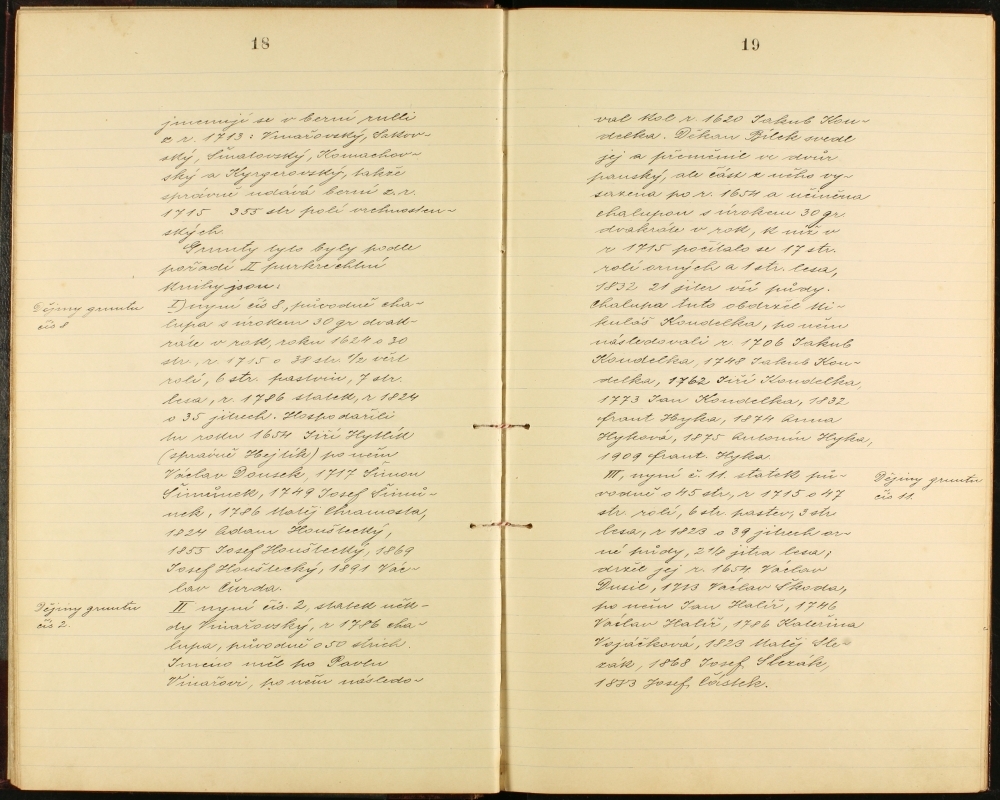 18
jmenují se v berní rulli
z r. 1713: Vinařovský, Sakov-
ský, Šmatovský, Komachov-
ský a Kyrgerovský, takže
správně udává berní z. r.
1715 355 str polí vrchnosten-
ských
Grunty tyto byly podle
pořadí II purkrechtní
knihy jsou:
Dějiny gruntu
čís 8
I) nyní čís 8, původně cha-
lupa s úrokem 30 gr dvak-
ráte v rok, roku 1624 o 30
str, r. 1715 o 31 str. 1/2 věrt
rolí, 6 str. pastvin, 7 str.
lesa, r. 1786 statek, r 1824
o 35 jitrech. Hospodařili
tu roku 1654 Jiří Hytlík
(správně Hejlík) po něm
Václav Dousek, 1717 Šimon
Šimůnek, 1749 Josef Šimů-
nek, 1786 Matěj Chramosta,
1824 Adam Houštecký,
1855 Josef Houštecký, 1869
Josef Houštecký, 1891 Vác-
lav Čurda.
Dějiny gruntu
čís 2.
II nyní čís. 2, statek něk-
dy Vinařovský, r 1786 cha-
lupa, původně o 50 strich.
Jméno měl po Pavlu
Vinařovi, po něm následo-
19
val kol r. 1620 Jakub Kou-
delka. Děkan Bílek svedl
jej a přeměnil ve dvůr
panský, ale část z něho vy-
sazena po r. 1654 a učiněna
chalupou s úrokem 30 gr.
dvakráte v rok, k níž v
r 1715 počítalo se 17 str.
rolí orných a 1 str. lesa,
1832 21 jiter vší půdy.
Chalupu tuto obdržel Mi-
kuláš Koudelka, po něm
následovali r. 1706 Jakub
Koudelka, 1748 Jakub Kou-
delka, 1762 Jiří Koudelka,
1773 Jan Koudelka, 1832
Frant Hyka, 1874 Anna
Hyková, 1875 Antonín Hyka,
1909 Frant. Hyka.
Dějiny gruntu
čís 11.
III, nyní č. 11. statek pů-
vodně o 45 str, r 1715 o 47
str. rolí, 6 str pastv, 3 str
lesa, r 1823 o 39 jitrech or-
né půdy, 2 1/4 jitra lesa;
držel jej r. 1654 Václav
Dusil, 1713 Václav Škoda,
po něm Jan Halíř, 1746
Václav Halíř, 1786 Kateřina
Vojáčková, 1823 Matěj Sle-
zák, 1868 Josef Slezák,
1883 Josef Částek.